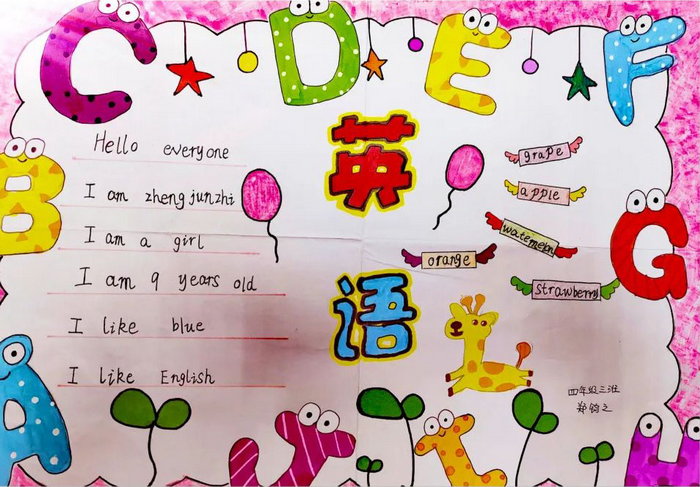 C D E F
B
G
A
J I H
英
语
Hello everyone
I am zheng junzhi
I am a girl
I am 9 years old
I like blue
I like English
grape
apple
orange
strawberry
四年级三班
郑钧之